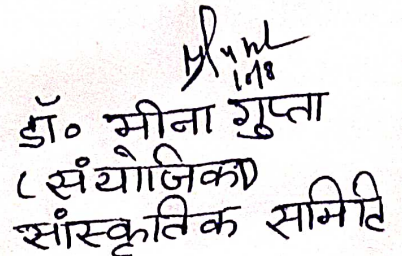 1/8
डॉ० मीना गुप्ता
(संयोजिका)
सांस्कृतिक समिति